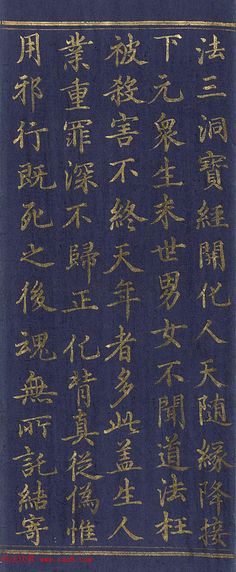 法三洞寶經開化人天随緣降接
下元衆生末世男女不聞道法枉
被殺害不終天年者多此盖生人
業重罪深不歸正化背真從偽惟
用邪行既死之後魂無所託結寄